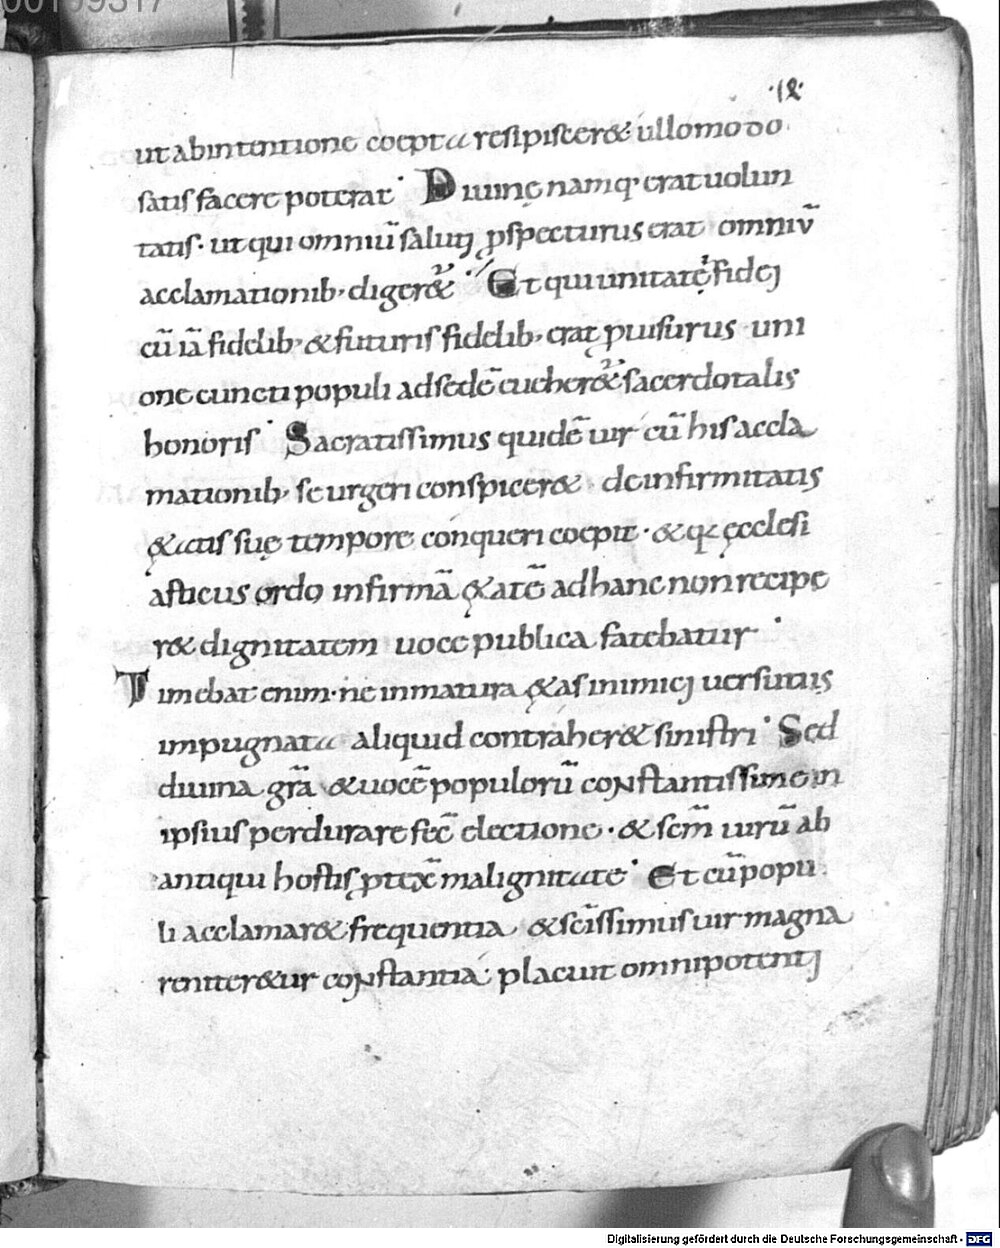 ·ix·
ut ab intentione coepta resipisceret ullo modo
satis facere poterat. Diuine namq; erat uolun
tatis. ut qui omniũ saluti ꝓspecturus erat omniũ
acclamationib; digeret̃. Et qui unitatẽ fidei
cũ iã fidelib; & futuris fidelib; erat ꝓuisurus uni
one cuncti populi ad sedẽ eueheret̃ sacerdotalis
honoris. Sacratissimus quidẽ uir cũ his accla
mationib; se urgeri conspiceret de infirmitatis
& ętatis suę tempore conqueri coepit. & q; ęcclesi
asticus ordo infirmã ętatẽ ad hanc non recipe
ret dignitatem uoce publica fatebatur.
Timebat enim. ne inmatura ętas inimici uersutiis
impugnata aliquid contraheret sinistri. Sed
diuina grã & uocẽ populorũ constantissime in
ipsius perdurare fec̃ electione. & sem̃ uirũ ab
antiqui hostis ꝓtex̃ malignitate. Et cũ popu
li acclamaret frequentia & sc̃issimus uir magna
reniteretur constantia. placuit omnipotenti
Digitalisierung gefördert durch die Deutsche Forschungsgemeinschaft - DFG